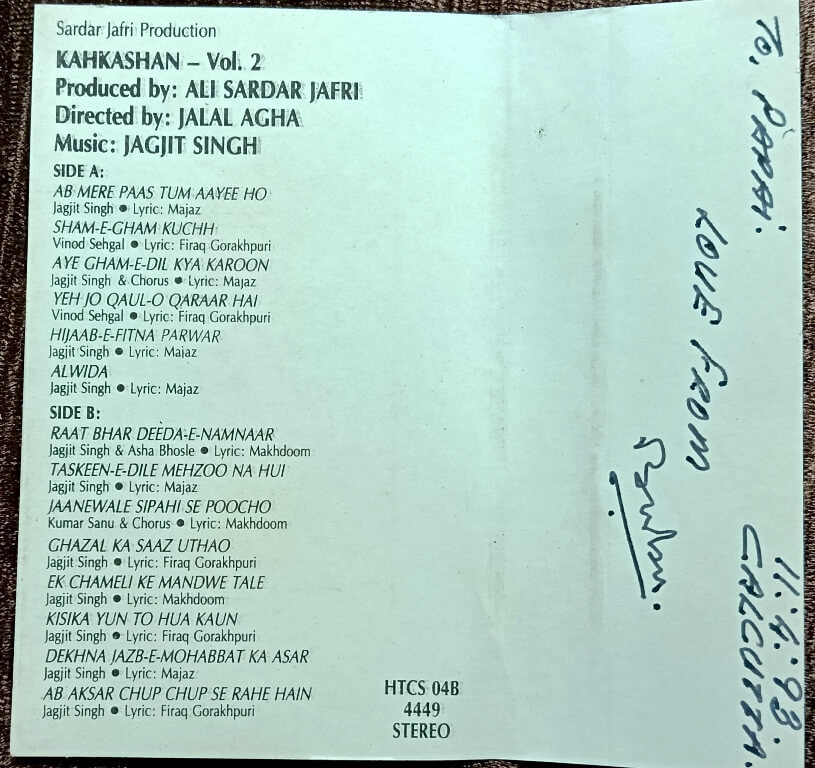 Sardar Jafri Production
KAHKASHAN – Vol. 2
Produced by: ALI SARDAR JAFRI
Directed by: JALAL AGHA
Music: JAGJIT SINGH
SIDE A:
AB MERE PAAS TUM AAYEE HO
Jagjit Singh ● Lyric: Majaz
SHAM-E-GHAM KUCHH
Vinod Sehgal ● Lyric: Firaq Gorakhpuri
AYE GHAM-E-DIL KYA KAROON
Jagjit Singh & Chorus ● Lyric: Majaz
YEH JO QAUL-O QARAAR HAI
Vinod Sehgal ● Lyric: Firaq Gorakhpuri
HIJAAB-E-FITNA PARWAR
Jagjit Singh ● Lyric: Majaz
ALWIDA
Jagjit Singh ● Lyric: Majaz
SIDE B:
RAAT BHAR DEEDA-E-NAMNAAR
Jagjit Singh & Asha Bhosle ● Lyric: Makhdoom
TASKEEN-E-DILE MEHZOO NA HUI
Jagjit Singh ● Lyric: Majaz
JAANEWALE SIPAHI SE POOCHO
Kumar Sanu & Chorus ● Lyric: Makhdoom
GHAZAL KA SAAZ UTHAO
Jagjit Singh ● Lyric: Firaq Gorakhpuri
EK CHAMELI KE MANDWE TALE
Jagjit Singh ● Lyric: Makhdoom
KISIKA YUN TO HUA KAUN
Jagjit Singh ● Lyric: Firaq Gorakhpuri
DEKHNA JAZB-E-MOHABBAT KA ASAR
Jagjit Singh ● Lyric: Majaz
AB AKSAR CHUP CHUP SE RAHE HAIN
Jagjit Singh ● Lyric: Firaq Gorakhpuri
HTCS 04B
4449
STEREO
TO, PAPAI.
LOVE FROM
11.4.'93.
CALCUTTA.